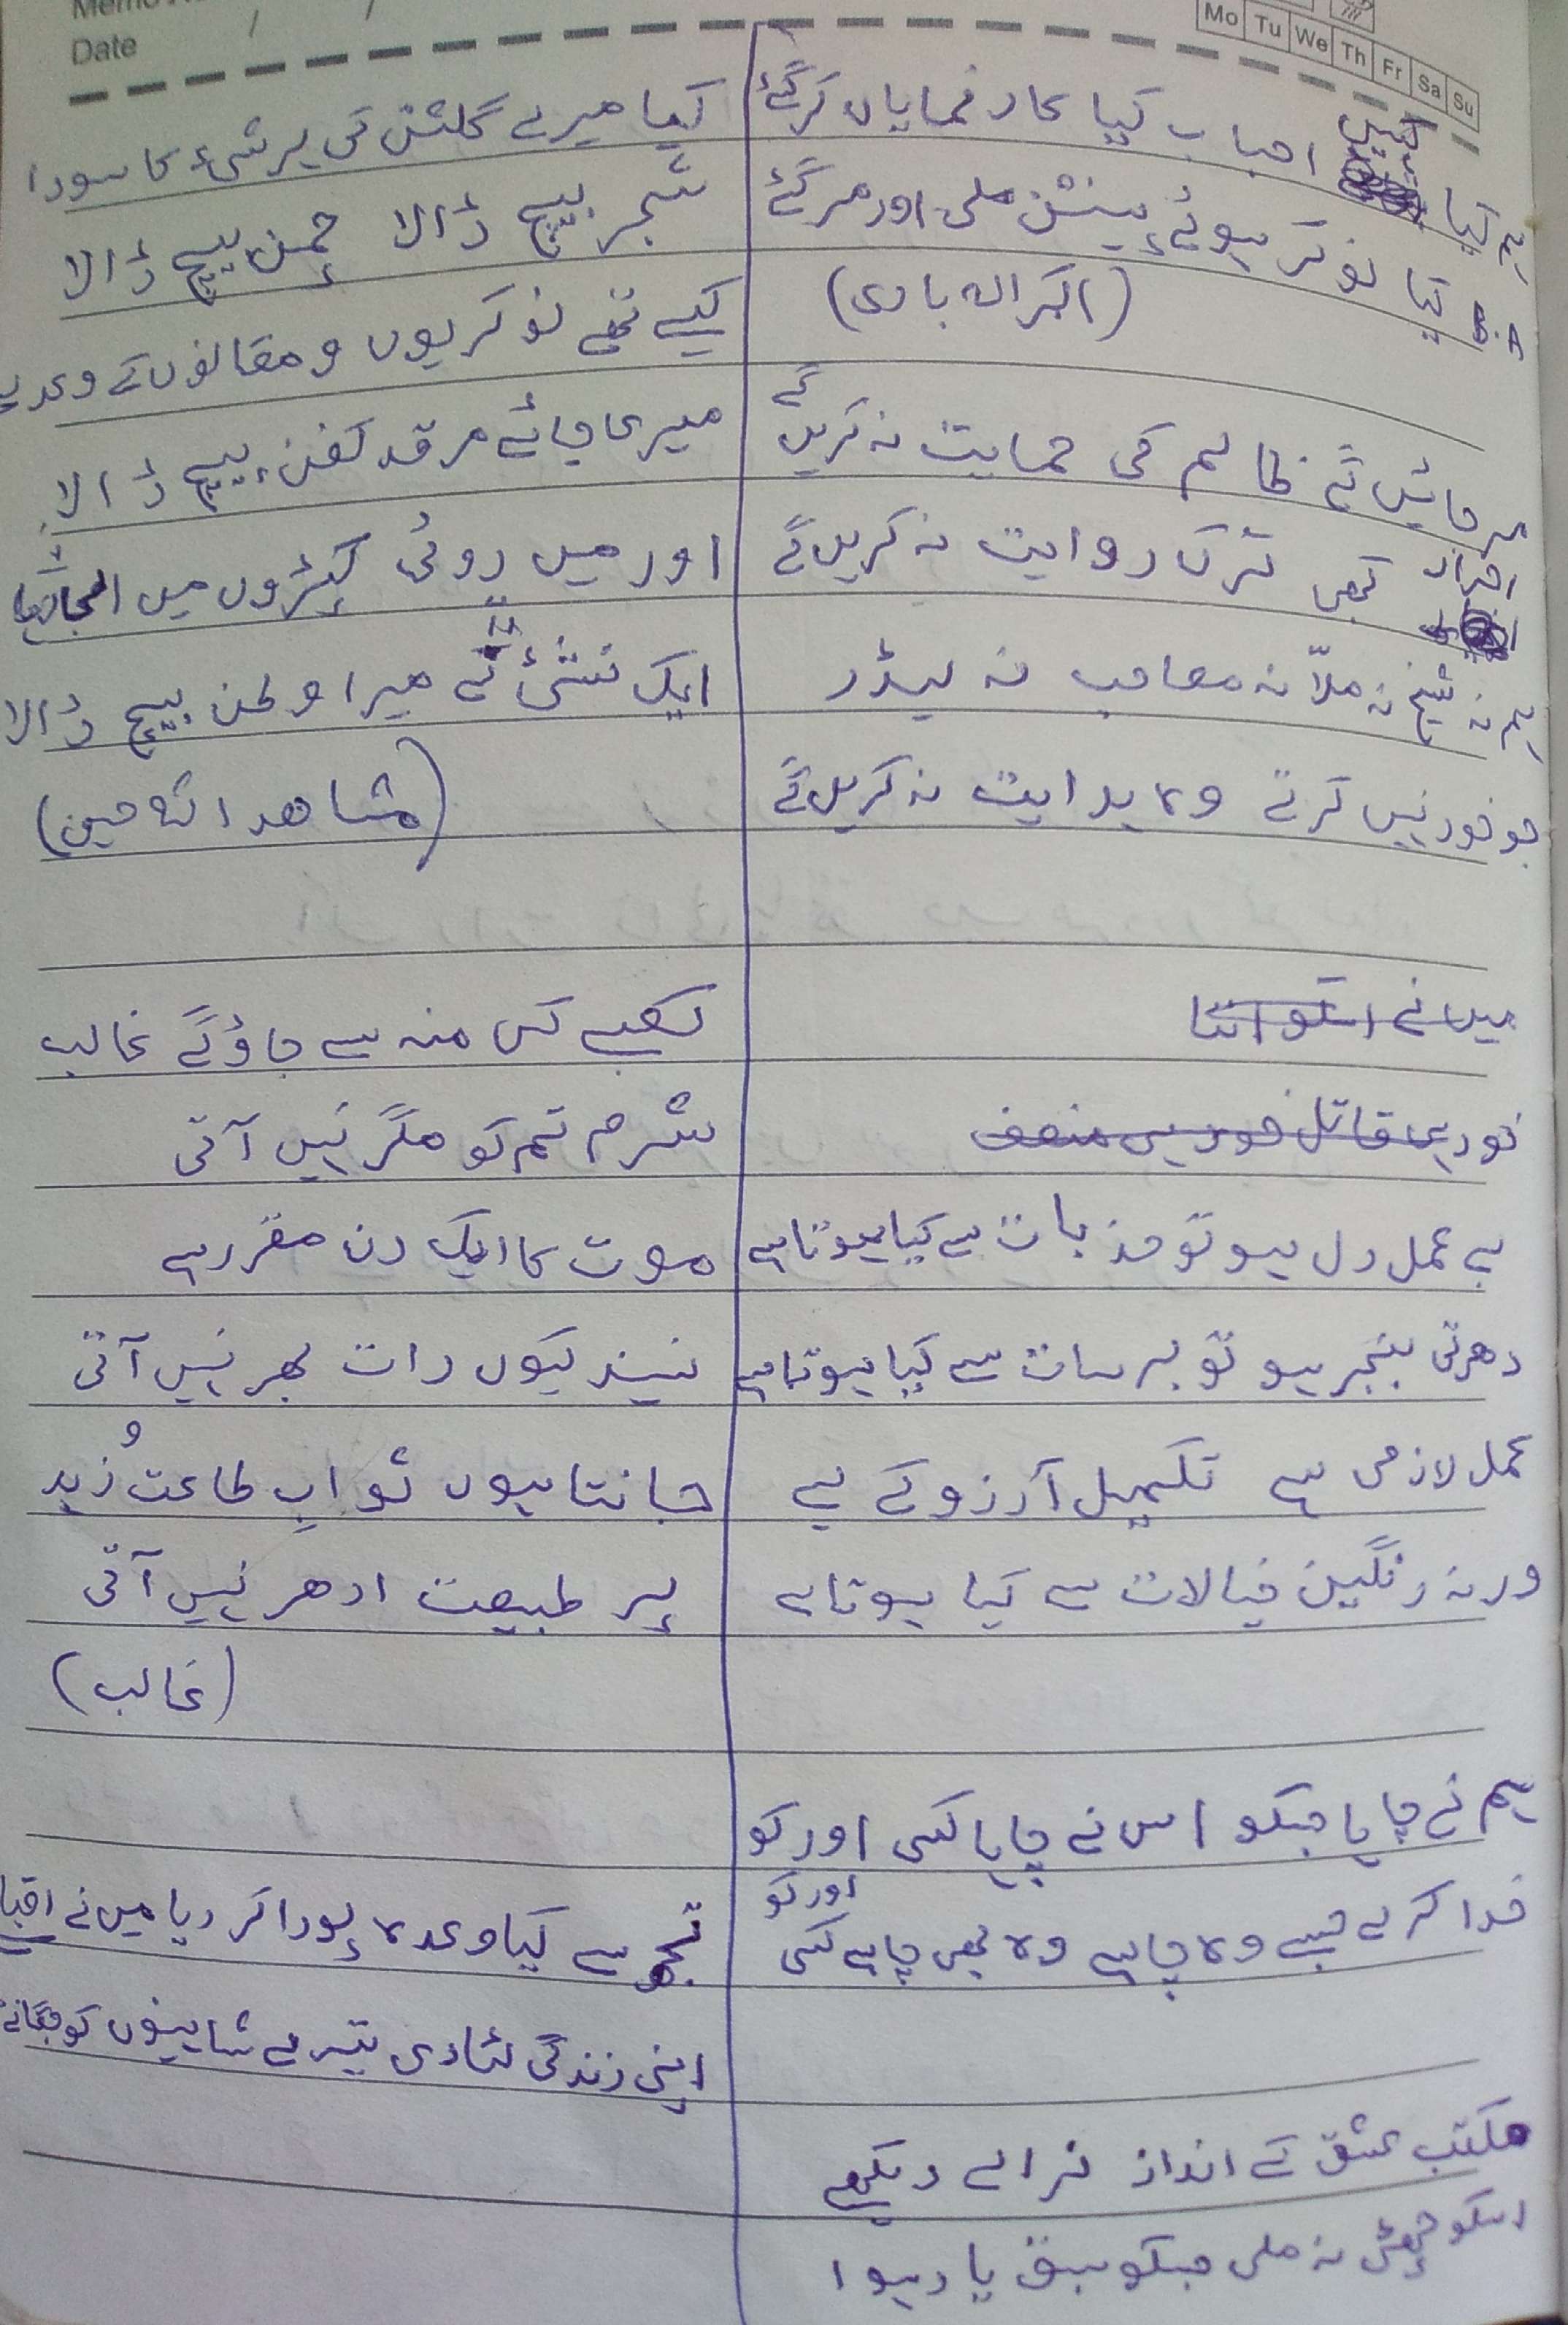 Date
Mo Tu We Th Fr Sa Su
ہم کیا کہیں احباب کیا کار نمایاں کر گئے
کیا نوکر ہوئے پینشن ملی اور مر گئے
(اکبر الہ بادی)
مر جائیں گے ظالم کی حمایت نہ کریں گے
احرار کبھی ترک روایت نہ کریں گے
ہم نہ شیخ نہ ملاّ نہ مصاحب نہ لیڈر
جو خود نہیں کرتے وہ ہدایت نہ کریں گے
میں نے اسکو اتنا
خود ہی قاتل خود ہی منصف
بے عمل دل ہو تو جذبات سے کیا ہوتا ہے
دھرتی بنجر ہو تو برسات سے کیا ہوتا ہے
عمل لازمی ہے تکمیل آرزو کے لیے
ورنہ رنگین خیالات سے کیا ہوتا ہے
ہم نے چاہا جسکو اس نے چاہا کسی اور کو
خدا کرے جسے وہ چاہے وہ بھی چاہے کسی اور کو
مکتب عشق کے انداز نرالے دیکھے
اسکو چھٹی نہ ملی جسکو سبق یاد ہوا
کیا میرے گلشن کی ہر شئ کا سودا
شجر بیچ ڈالا چمن بیچ ڈالا
کیے تھے نوکریوں و مقانوں کے وعدے
میری جائے مرقد کفن بیچ ڈالا
اور میں روٹی کپڑوں میں الجھا تھا
ایک نشئ نے میرا وطن بیچ ڈالا
(مشاهد اللہ حسین)
کعبے کس منہ سے جاؤ گے غالب
شرم تم کو مگر نہیں آتی
موت کا ایک دن مقرر ہے
نیند کیوں رات بھر نہیں آتی
جانتا ہوں ثوابِ طاعت و زُہد
پر طبیعت ادھر نہیں آتی
(غالب)
تجھ سے کیا وعدہ پورا کر دیا میں نے
اپنی زندگی لٹا دی تیرے شاہینوں کو جگانے